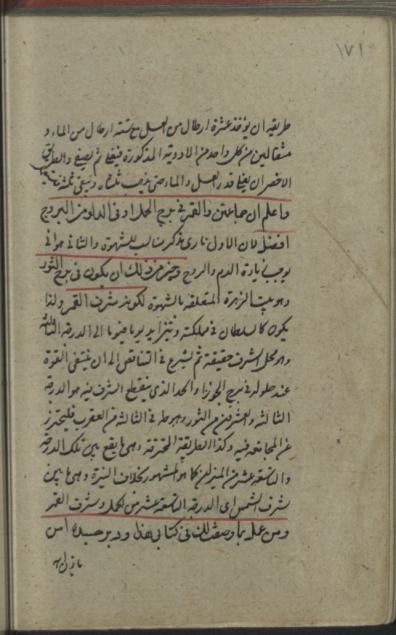 ١٧١
طريقه ان يؤخذ عشرة ارطال من العسل مع ستة ارطال من الماء و
مثقالين من كل واحد من الادوية المذكورة فيغلى ثم يصفى والطريق
الاخصر ان يغلى قدر العسل والماء حتى يذهب ثلثاه ويبقى ثلثه
واعلم ان جماعتين والقمر في برج الحمل او في الدلو من البروج
افضل لان الاول ناري مذكر مناسب للشهوة والثاني هوائي
يوجب زيادة الدم والروح وخير من ذلك ان يكون في برج الثور
وهو بيت الزهرة المتعلقة بالشهوة لكونه شرف القمر ولذا
يكون كالسلطان في مملكته ويتزايد يوما فيوما الى الدرجة الثالثة
وهو محل الشرف حقيقة ثم يشرع في التناقص الى ان ينتفى القوة
عند حلوله في برج الجوزاء والحد الذي ينقطع الشرف فيه هو الدرجة
الثالثة والعشرين من الثور وهبوطه في الثالثة من العقرب فليحترز
عن المجامعة فيه وكذا الطريقة المحترقة وهي ما يقع بين تلك الدرجة
والتاسعة عشر من الميزان كما هو المشهور بخلاف النيرة وهي ما بين
شرف الشمس اي الدرجة التاسعة عشر من الحمل وشرف القمر
ومن عمل بما وصفت لك في كتابي هذا ودبر جسده امن